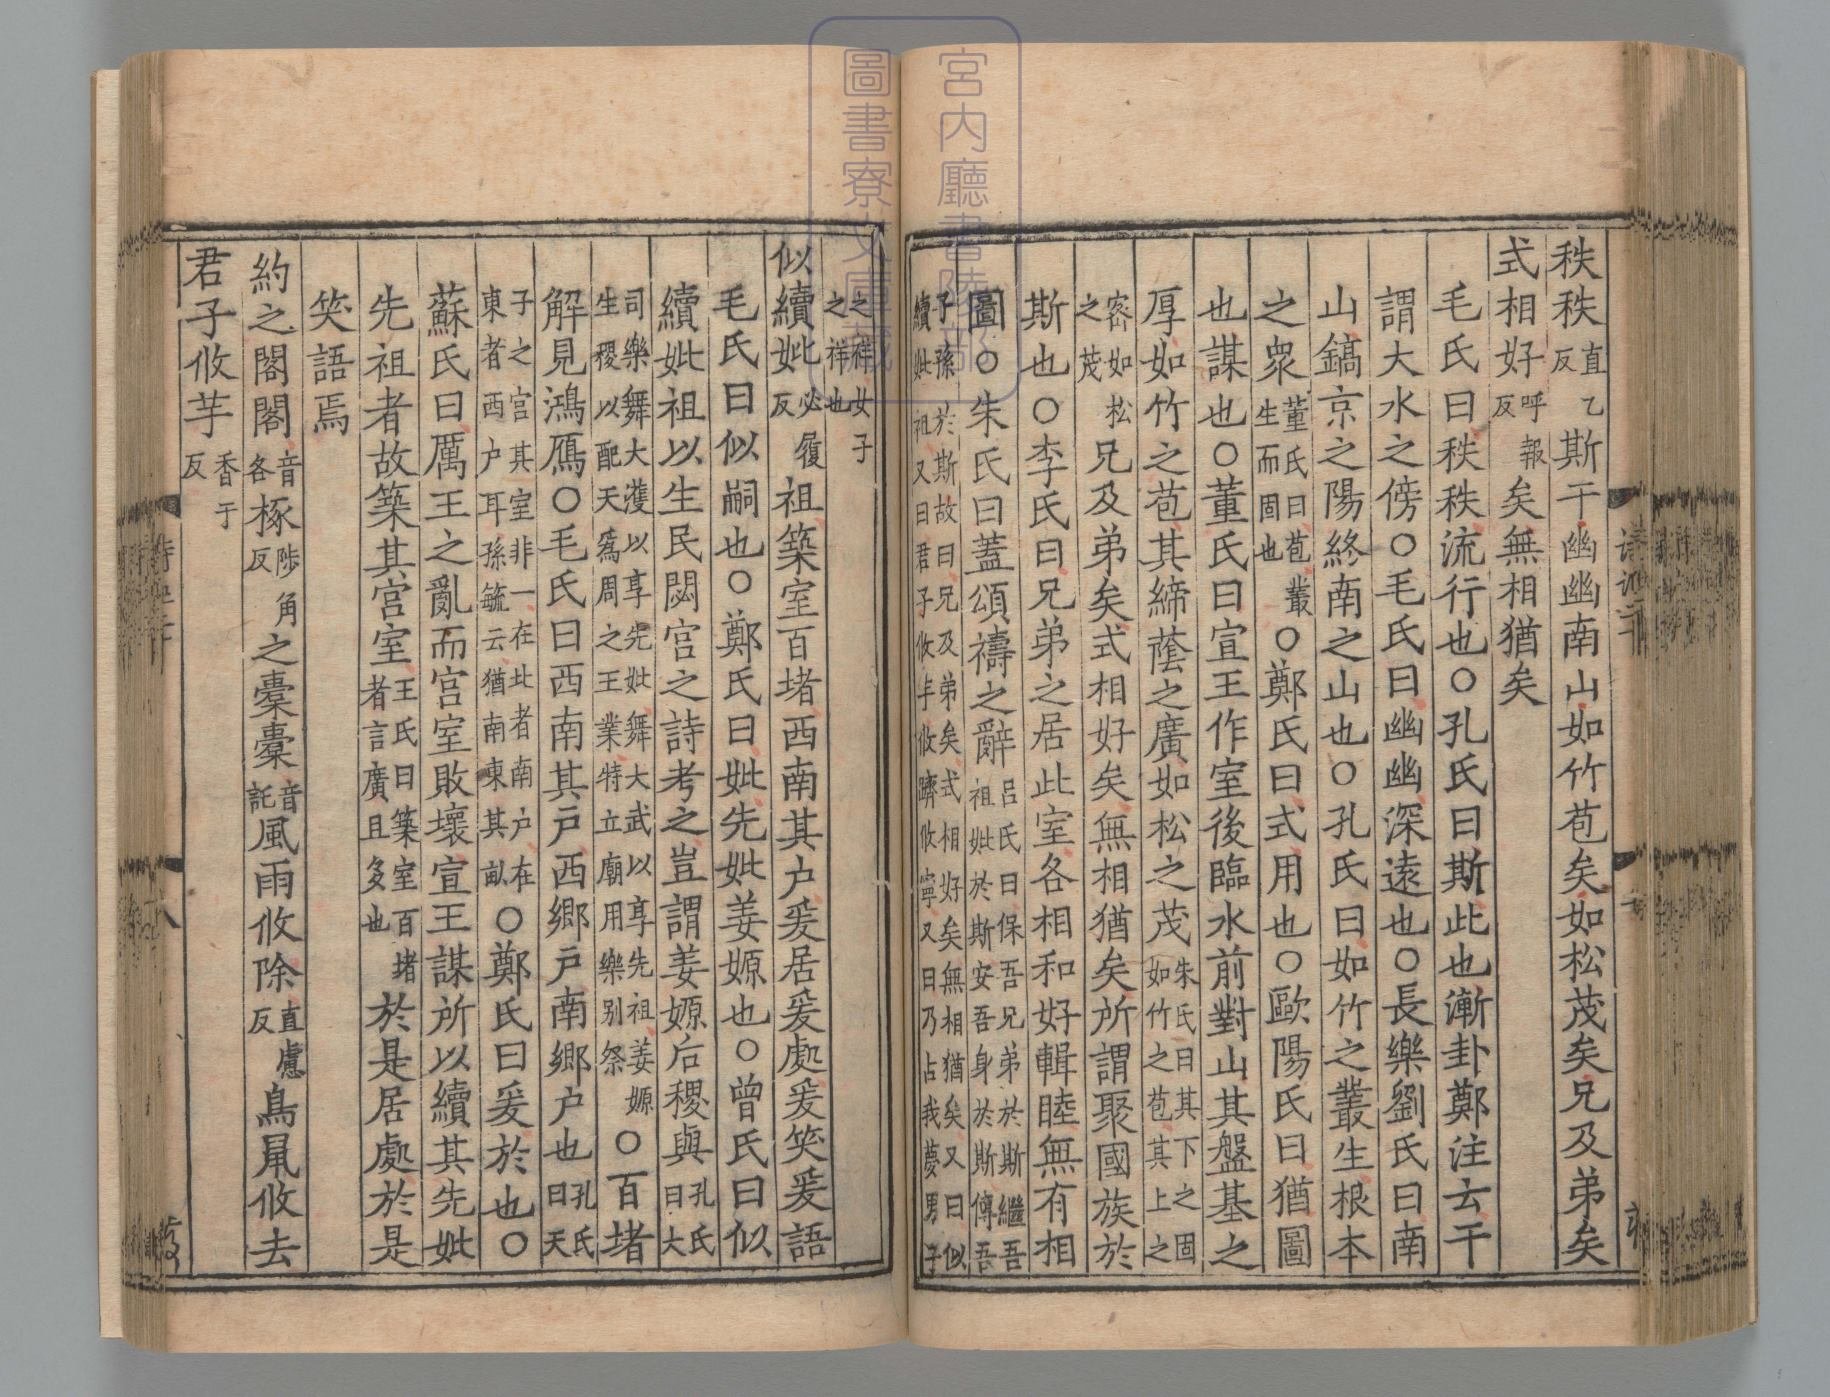 秩秩直乙反斯干幽幽南山如竹苞矣如松茂矣兄及弟矣
式相好呼報反矣無相猶矣
毛氏曰秩秩流行也○孔氏曰斯此也漸卦鄭注云干
謂大水之傍○毛氏曰幽幽深遠也○長樂劉氏曰南
山鎬京之陽終南之山也○孔氏曰如竹之叢生根本
之衆董氏曰苞叢生而固也○鄭氏曰式用也○歐陽氏曰猶圖
也謀也○董氏曰宣王作室後臨水前對山其盤基之
厚如竹之苞其締蔭之廣如松之茂朱氏曰其下之固如竹之苞其上之
密如松之茂兄及弟矣式相好矣無相猶矣所謂聚國族於
斯也○李氏曰兄弟之居此室各相和好輯睦無有相
圖○朱氏曰蓋頌禱之辭呂氏曰保吾兄弟於斯繼吾祖妣於斯安吾身於斯傳吾
子孫於斯故曰兄及弟矣式相好矣無相猶矣又曰似續妣祖又曰君子攸芋攸躋攸寧又曰乃占我夢男子
之祥女子之祥也
似續妣必履反祖築室百堵西南其户爰居爰處爰笑爰語
毛氏曰似嗣也○鄭氏曰妣先妣姜嫄也○曾氏曰似
續妣祖以生民閟宮之詩考之豈謂姜嫄后稷與孔氏曰大
司樂舞大濩以享先妣舞大武以享先祖姜嫄生稷以配天爲周之王業特立廟用樂别祭○百堵
解見鴻鴈○毛氏曰西南其戸西鄉戸南鄉户也孔氏曰天
子之宮其室非一在北者南户在東者西户耳孫毓云猶南東其畝○鄭氏曰爰於也○
蘇氏曰厲王之亂而宮室敗壞宣王謀所以續其先妣
先祖者故築其宮室王氏曰築室百堵者言廣且多也於是居處於是
笑語焉
約之閣閣音各椓陟角反之橐橐音託風雨攸除直慮反鳥鼠攸去
君子攸芋香于反
宮内廳書陵部
圖書寮文庫藏